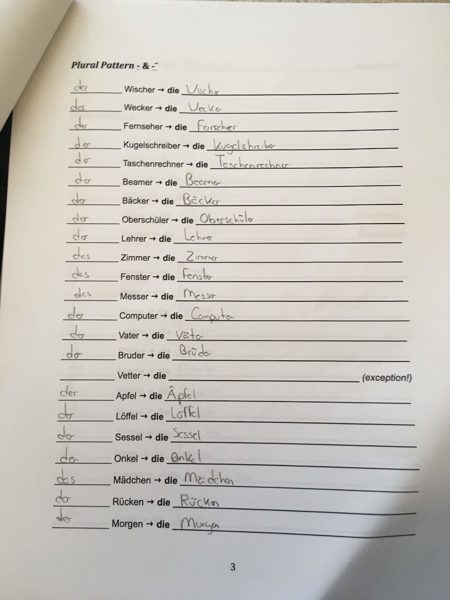 Plural Pattern - & -¨
der Wischer → die Wischer
der Wecker → die Wecker
der Fernseher → die Fernseher
der Kugelschreiber → die Kugelschreiber
der Taschenrechner → die Taschenrechner
der Beamer → die Beamer
der Bäcker → die Bäcker
der Oberschüler → die Oberschüler
der Lehrer → die Lehrer
das Zimmer → die Zimmer
das Fenster → die Fenster
das Messer → die Messer
der Computer → die Computer
der Vater → die Väter
der Bruder → die Brüder
Vetter → die (exception!)
der Apfel → die Äpfel
der Löffel → die Löffel
der Sessel → die Sessel
der Onkel → die Onkel
das Mädchen → die Mädchen
der Rücken → die Rücken
der Morgen → die Morgen
3